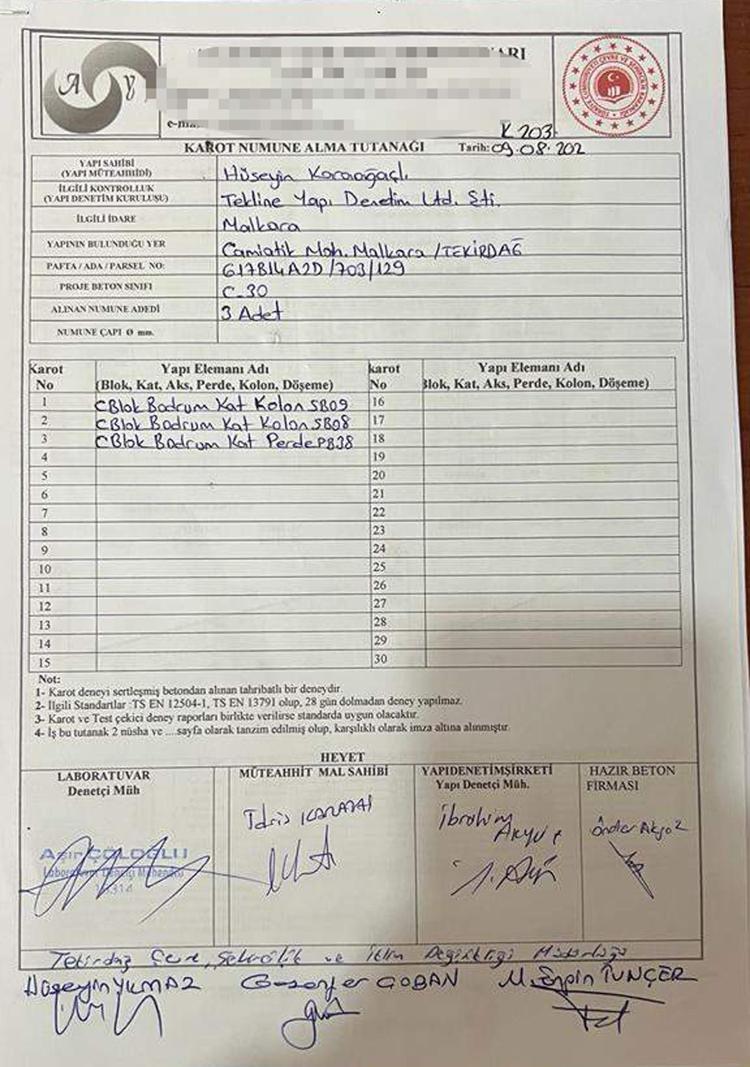 A Y
ARI
e-ma
TÜRKİYE CUMHURİYETİ ÇEVRE VE ŞEHİRCİLİK BAKANLIĞI
K 203
KAROT NUMUNE ALMA TUTANAĞI Tarih: 09.08.202
YAPI SAHİBİ
(YAPI MÜTEAHHİDİ) Hüseyin Karaağaçlı
İLGİLİ KONTROLLUK
(YAPI DENETİM KURULUŞU) Tekline Yapı Denetim Ltd. Şti.
İLGİLİ İDARE Malkara
YAPININ BULUNDUĞU YER Camiatik Mah. Malkara /TEKİRDAĞ
PAFTA / ADA / PARSEL NO: G17B14A2D/703/129
PROJE BETON SINIFI C-30
ALINAN NUMUNE ADEDİ 3 Adet
NUMUNE ÇAPI Ø mm.
Karot Yapı Elemanı Adı karot Yapı Elemanı Adı
No (Blok, Kat, Aks, Perde, Kolon, Döşeme) No Blok, Kat, Aks, Perde, Kolon, Döşeme)
1 CBlok Bodrum Kat Kolon SB09 16
2 CBlok Bodrum Kat Kolon SB08 17
3 CBlok Bodrum Kat Perde PB38 18
4 19
5 20
6 21
7 22
8 23
9 24
10 25
11 26
12 27
13 28
14 29
15 30
Not:
1- Karot deneyi sertleşmiş betondan alınan tahribatlı bir deneydir
2- İlgili Standartlar :TS EN 12504-1, TS EN 13791 olup, 28 gün dolmadan deney yapılmaz.
3- Karot ve Test çekici deney raporları birlikte verilirse standarda uygun olacaktır.
4- İş bu tutanak 2 nüsha ve ....sayfa olarak tanzim edilmiş olup, karşılıklı olarak imza altına alınmıştır.
HEYET
LABORATUVAR MÜTEAHHİT MAL SAHİBİ YAPIDENETİMŞİRKETİ HAZIR BETON
Denetçi Müh Yapı Denetçi Müh. FİRMASI
İdris
İbrahim
Akyüz
Önder Akyoz
ÇÖLOĞLU
Laboratuvar Denetçi Mühendisi
Tekirdağ Çevre, Şehircilik ve İklim Değişikliği Müdürlüğü
Hüseyin YILMAZ Gazanfer ÇOBAN M. Ergin TUNÇER